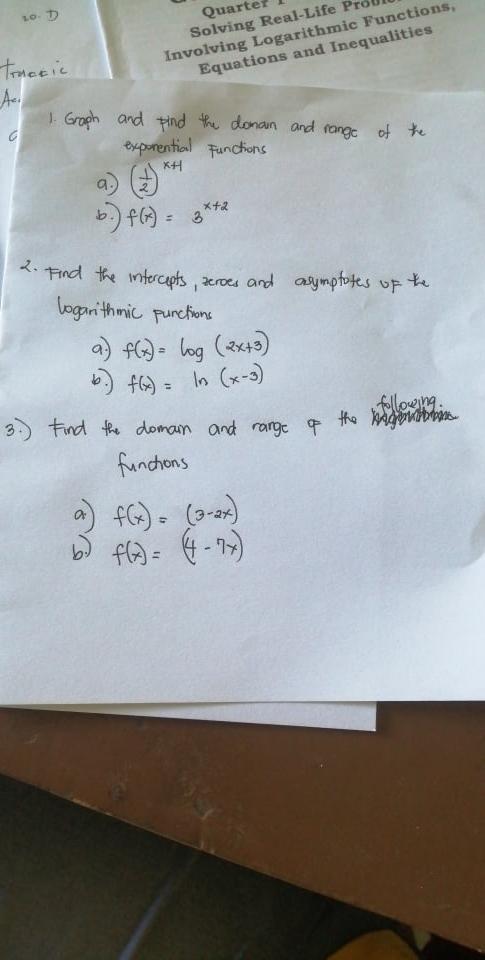 20. D
Quarter
Solving Real-Life
Involving Logarithmic Functions,
Equations and Inequalities
1. Graph and find the domain and range of the
exponential functions
a.) (1/2)^x+1
b.) f(x) = 3^x+2
2. Find the intercepts, zeroes and asymptotes of the
logarithmic functions
a) f(x) = log (2x+3)
b.) f(x) = ln (x-3)
3.) Find the domain and range of the following.
functions
a) f(x) = (3-2x)
b) f(x) = (4-7x)